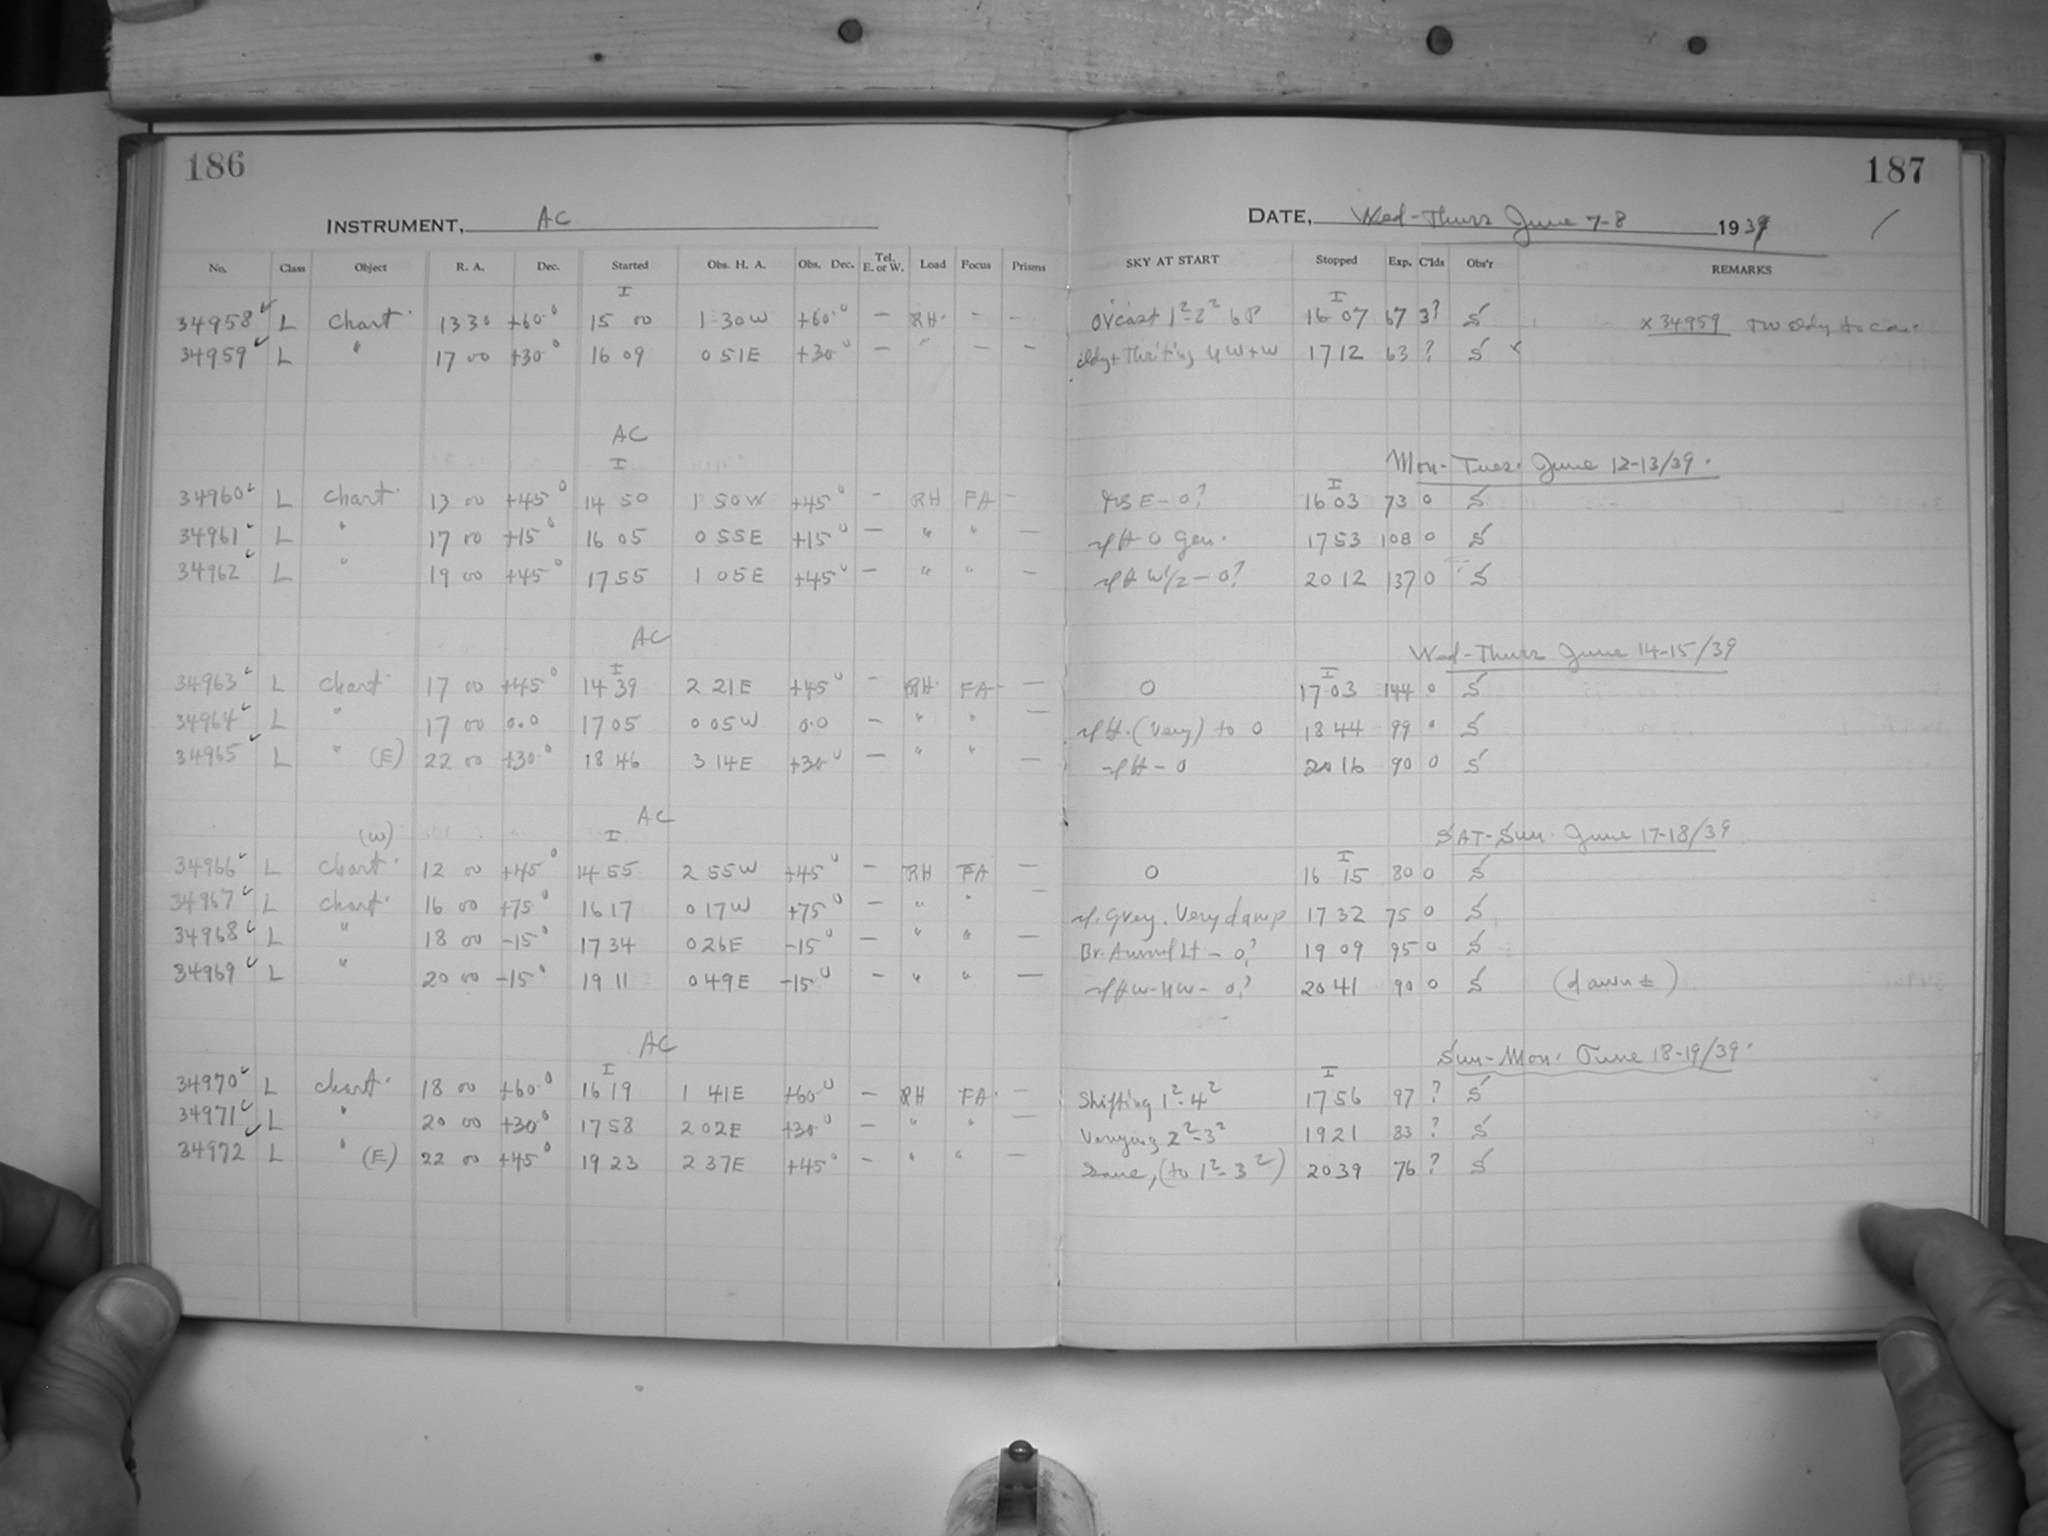 186
INSTRUMENT, AC
No. Class Object R. A. Dec. Started Obs. H. A. Obs. Dec. Tel. E. or W. Load Focus Prisms
I
34958 L Chart 13 30 +60° 15 00 1 30 W +60° — RH - -
34959 L " 17 00 +30° 16 09 0 51 E +30° — " — —
AC
I
34960 L Chart 13 00 +45° 14 50 1 50 W +45° - RH FA -
34961 L " 17 00 +15° 16 05 0 55 E +15° — " " —
34962 L " 19 00 +45° 17 55 1 05 E +45° — " " —
AC
I
34963 L Chart 17 00 +45° 14 39 2 21 E +45° - RH FA —
34964 L " 17 00 0.0 17 05 0 05 W 0.0 — " " —
34965 L " (E) 22 00 +30° 18 46 3 14 E +30° — " " —
AC
(W) I
34966 L Chart 12 00 +45° 14 55 2 55 W +45° — RH FA —
34967 L Chart 16 00 +75° 16 17 0 17 W +75° — " " —
34968 L " 18 00 -15° 17 34 0 26 E -15° — " " —
34969 L " 20 00 -15° 19 11 0 49 E -15° — " " —
AC
I
34970 L Chart 18 00 +60° 16 19 1 41 E +60° — RH FA —
34971 L " 20 00 +30° 17 58 2 02 E +30° — " " —
34972 L " (E) 22 00 +45° 19 23 2 37 E +45° — " " —
187
DATE, Wed-Thurs June 7-8 1939
SKY AT START Stopped Exp. C'lds Obs'r REMARKS
I
Ov'cast 1²-2² 16 07 67 3? S x 34959 cldy to
17 12 63 ? S
Mon-Tues. June 12-13/39.
I
E-0? 16 03 73 0 S
0 Gen. 17 53 108 0 S
W 1/2 - 0? 20 12 137 0 S
Wed-Thurs June 14-15/39
I
0 17 03 144 0 S
(Very) to 0 18 44 99 0 S
- 0 20 16 90 0 S
SAT-Sun. June 17-18/39
I
0 16 15 80 0 S
Grey. Very damp 17 32 75 0 S
Br. Auroral Lt - 0? 19 09 95 0 S
- 0? 20 41 90 0 S (dawn ±)
Sun-Mon. June 18-19/39.
I
Shifting 1²-4² 17 56 97 ? S
Varying 2²-3² 19 21 83 ? S
Same, (to 1²-3²) 20 39 76 ? S